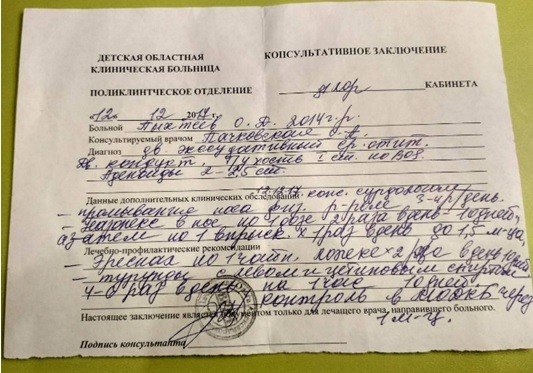 ДЕТСКАЯ ОБЛАСТНАЯ
КЛИНИЧЕСКАЯ БОЛЬНИЦА
КОНСУЛЬТАТИВНОЕ ЗАКЛЮЧЕНИЕ
ПОЛИКЛИНТЧЕСКОЕ ОТДЕЛЕНИЕ
лор КАБИНЕТА
«12» 12 2017 г.
Больной О. 2014 г/р.
Консультируемый врачом
Диагноз экссудативный ср. отит.
кондукт. т/ухость I ст. по ВОЗ.
Аденоиды 2-2,5 ст.
Данные дополнительных клинических обследований конс. сурдолога
— промывание носа физ. р-ром 3-4 р/день.
в нос по 1 дозе 2 раза в день - 10 дней,
затем по 1 впрыск × 1 раз в день до 1,5 м-ца,
Лечебно-профилактические рекомендации
— Эреспал по 1 чайн. ложке × 2 в день
— турунды с левомицетиновым спиртом
раз в день на 1 час 10 дней
контроль в через
1 м-ц.
Настоящее заключение является документом только для лечащего врача, направившего больного.
Подпись консультанта